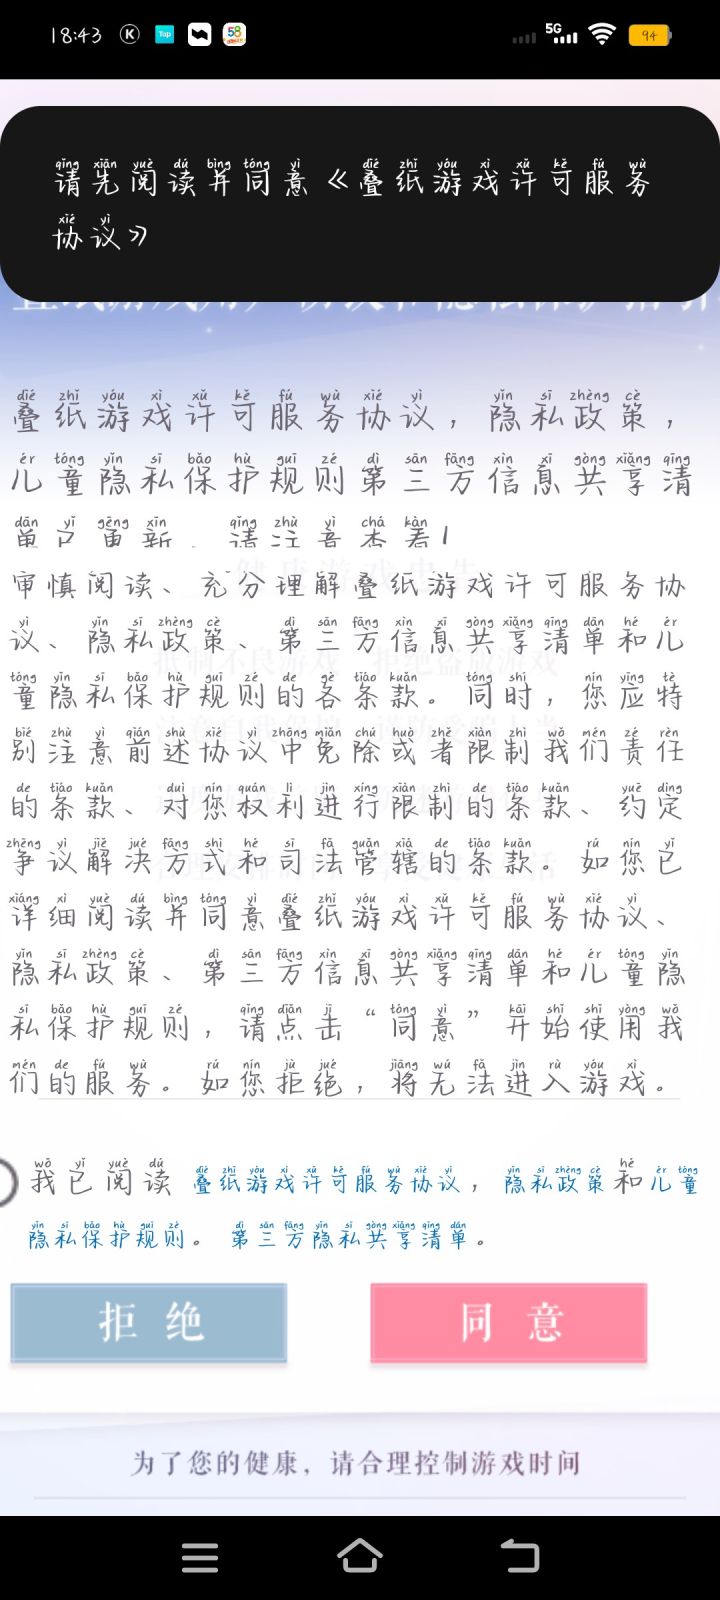 18:43 K Top 58 5G 94
请先阅读并同意《叠纸游戏许可服务
协议》
叠纸游戏许可服务协议，隐私政策，
儿童隐私保护规则第三方信息共享清
单已更新，请注意查看！
审慎阅读、充分理解叠纸游戏许可服务协
议、隐私政策、第三方信息共享清单和儿
童隐私保护规则的各条款。同时，您应特
别注意前述协议中免除或者限制我们责任
的条款、对您权利进行限制的条款、约定
争议解决方式和司法管辖的条款。如您已
详细阅读并同意叠纸游戏许可服务协议、
隐私政策、第三方信息共享清单和儿童隐
私保护规则，请点击“同意”开始使用我
们的服务。如您拒绝，将无法进入游戏。
我已阅读 叠纸游戏许可服务协议，隐私政策和儿童
隐私保护规则。第三方隐私共享清单。
拒绝 同意
为了您的健康，请合理控制游戏时间